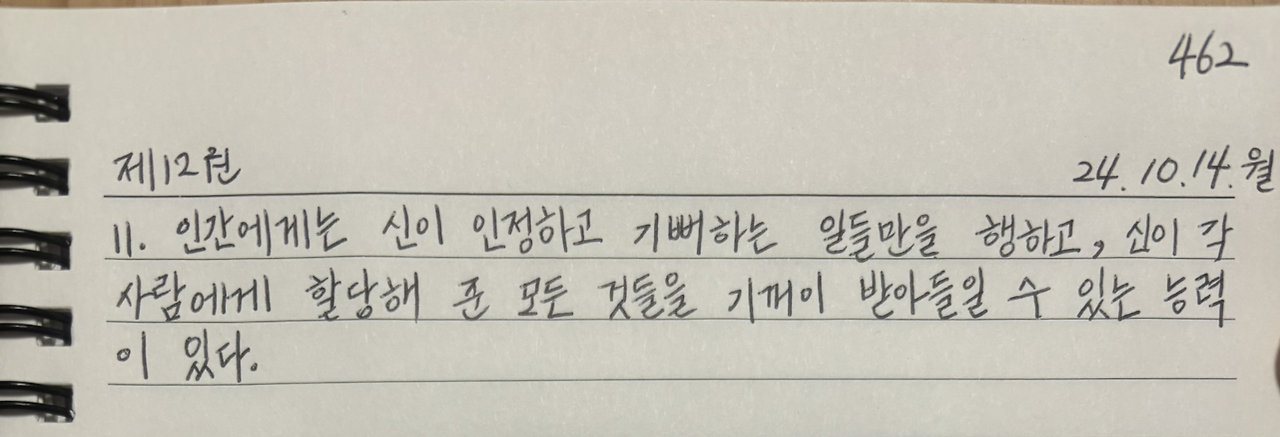 462
제12권 24.10.14.월
11. 인간에게는 신이 인정하고 기뻐하는 일들만을 행하고, 신이 각
사람에게 할당해 준 모든 것들을 기꺼이 받아들일 수 있는 능력
이 있다.